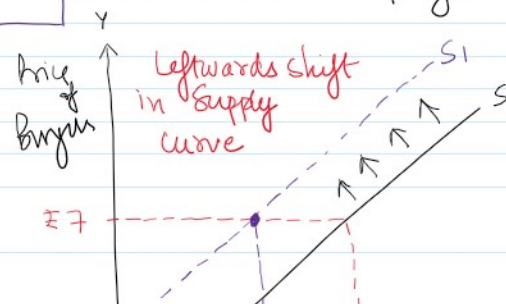 Y
Price
of
Burgers
Leftwards Shift
in Supply
curve
S1
S
₹ 7